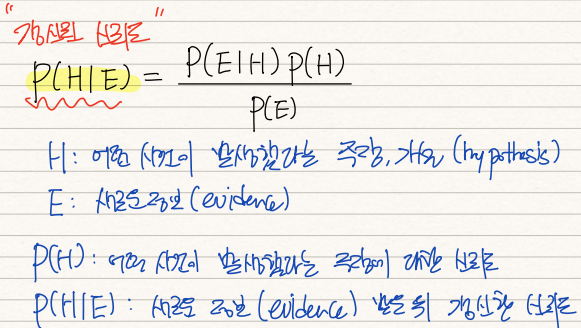 "갱신된 신뢰도"
P(H|E) = P(E|H) P(H) / P(E)
H : 어떤 사건이 발생했다는 주장, 가설 (hypothesis)
E : 새로운 정보 (evidence)
P(H) : 어떤 사건이 발생했다는 주장에 대한 신뢰도
P(H|E) : 새로운 정보 (evidence) 받은 뒤 갱신한 신뢰도